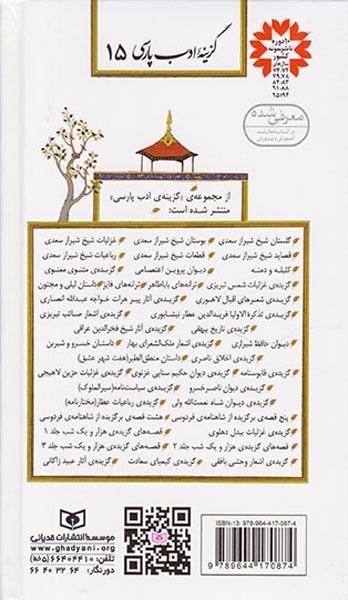 گزینهٔ ادب پارسی ۱۵
۱۰ دوره
ناشر نمونه
کشور
سال‌های
۷۴،۷۲
۷۹،۷۸
۸۳،۸۲
۹۱،۸۸
۹۵،۹۴
معرفی شده
در کتاب‌نامه‌ی رشد
آموزش و پرورش
از مجموعه‌ی «گزینه‌ی ادب پارسی»
منتشر شده است:
گلستان شیخ شیراز سعدی بوستان شیخ شیراز سعدی غزلیات شیخ شیراز سعدی
قصاید شیخ شیراز سعدی قطعات شیخ شیراز سعدی رباعیات شیخ شیراز سعدی
کلیله و دمنه دیوان پروین اعتصامی گزیده‌ی مثنوی معنوی
گزیده‌ی غزلیات شمس تبریزی ترانه‌های باباطاهر ترانه‌های فایز داستان لیلی و مجنون
گزیده‌ی شعرهای اقبال لاهوری گزیده‌ی آثار پیر هرات خواجه عبدالله انصاری
گزیده‌ی تذکرة الاولیا فریدالدین عطار نیشابوری گزیده‌ی اشعار صائب تبریزی
گزیده‌ی تاریخ بیهقی گزیده‌ی آثار شیخ فخرالدین عراقی
دیوان حافظ شیرازی گزیده‌ی اشعار ملک‌الشعرای بهار داستان خسرو و شیرین
گزیده‌ی اخلاق ناصری داستان منطق‌الطیر (هفت شهر عشق)
گزیده‌ی قابوسنامه گزیده‌ی دیوان حکیم سنایی غزنوی گزیده‌ی غزلیات حزین لاهیجی
گزیده‌ی دیوان ناصرخسرو گزیده‌ی سیاست‌نامه (سیرالملوک)
گزیده‌ی دیوان شاه نعمت‌الله ولی گزیده‌ی رباعیات عطار (مختارنامه)
پنج قصه‌ی برگزیده از شاهنامه‌ی فردوسی هشت قصه‌ی برگزیده از شاهنامه‌ی فردوسی
گزیده‌ی غزلیات بیدل دهلوی قصه‌های گزیده‌ی هزار و یک شب جلد ۱
قصه‌های گزیده‌ی هزار و یک شب جلد ۲ قصه‌های گزیده‌ی هزار و یک شب جلد ۳
گزیده‌ی اشعار وحشی بافقی گزیده‌ی کیمیای سعادت گزیده‌ی آثار عبید زاکانی
موسسه انتشارات قدیانی
www.ghadyani.org
تلفن: ۶۶۴۰۴۴۱۰ (۵خط)
دورنگار: ۶۶ ۴۰ ۳۲ ۶۴
ISBN-13: 978-964-417-087-4
9 789644 170874